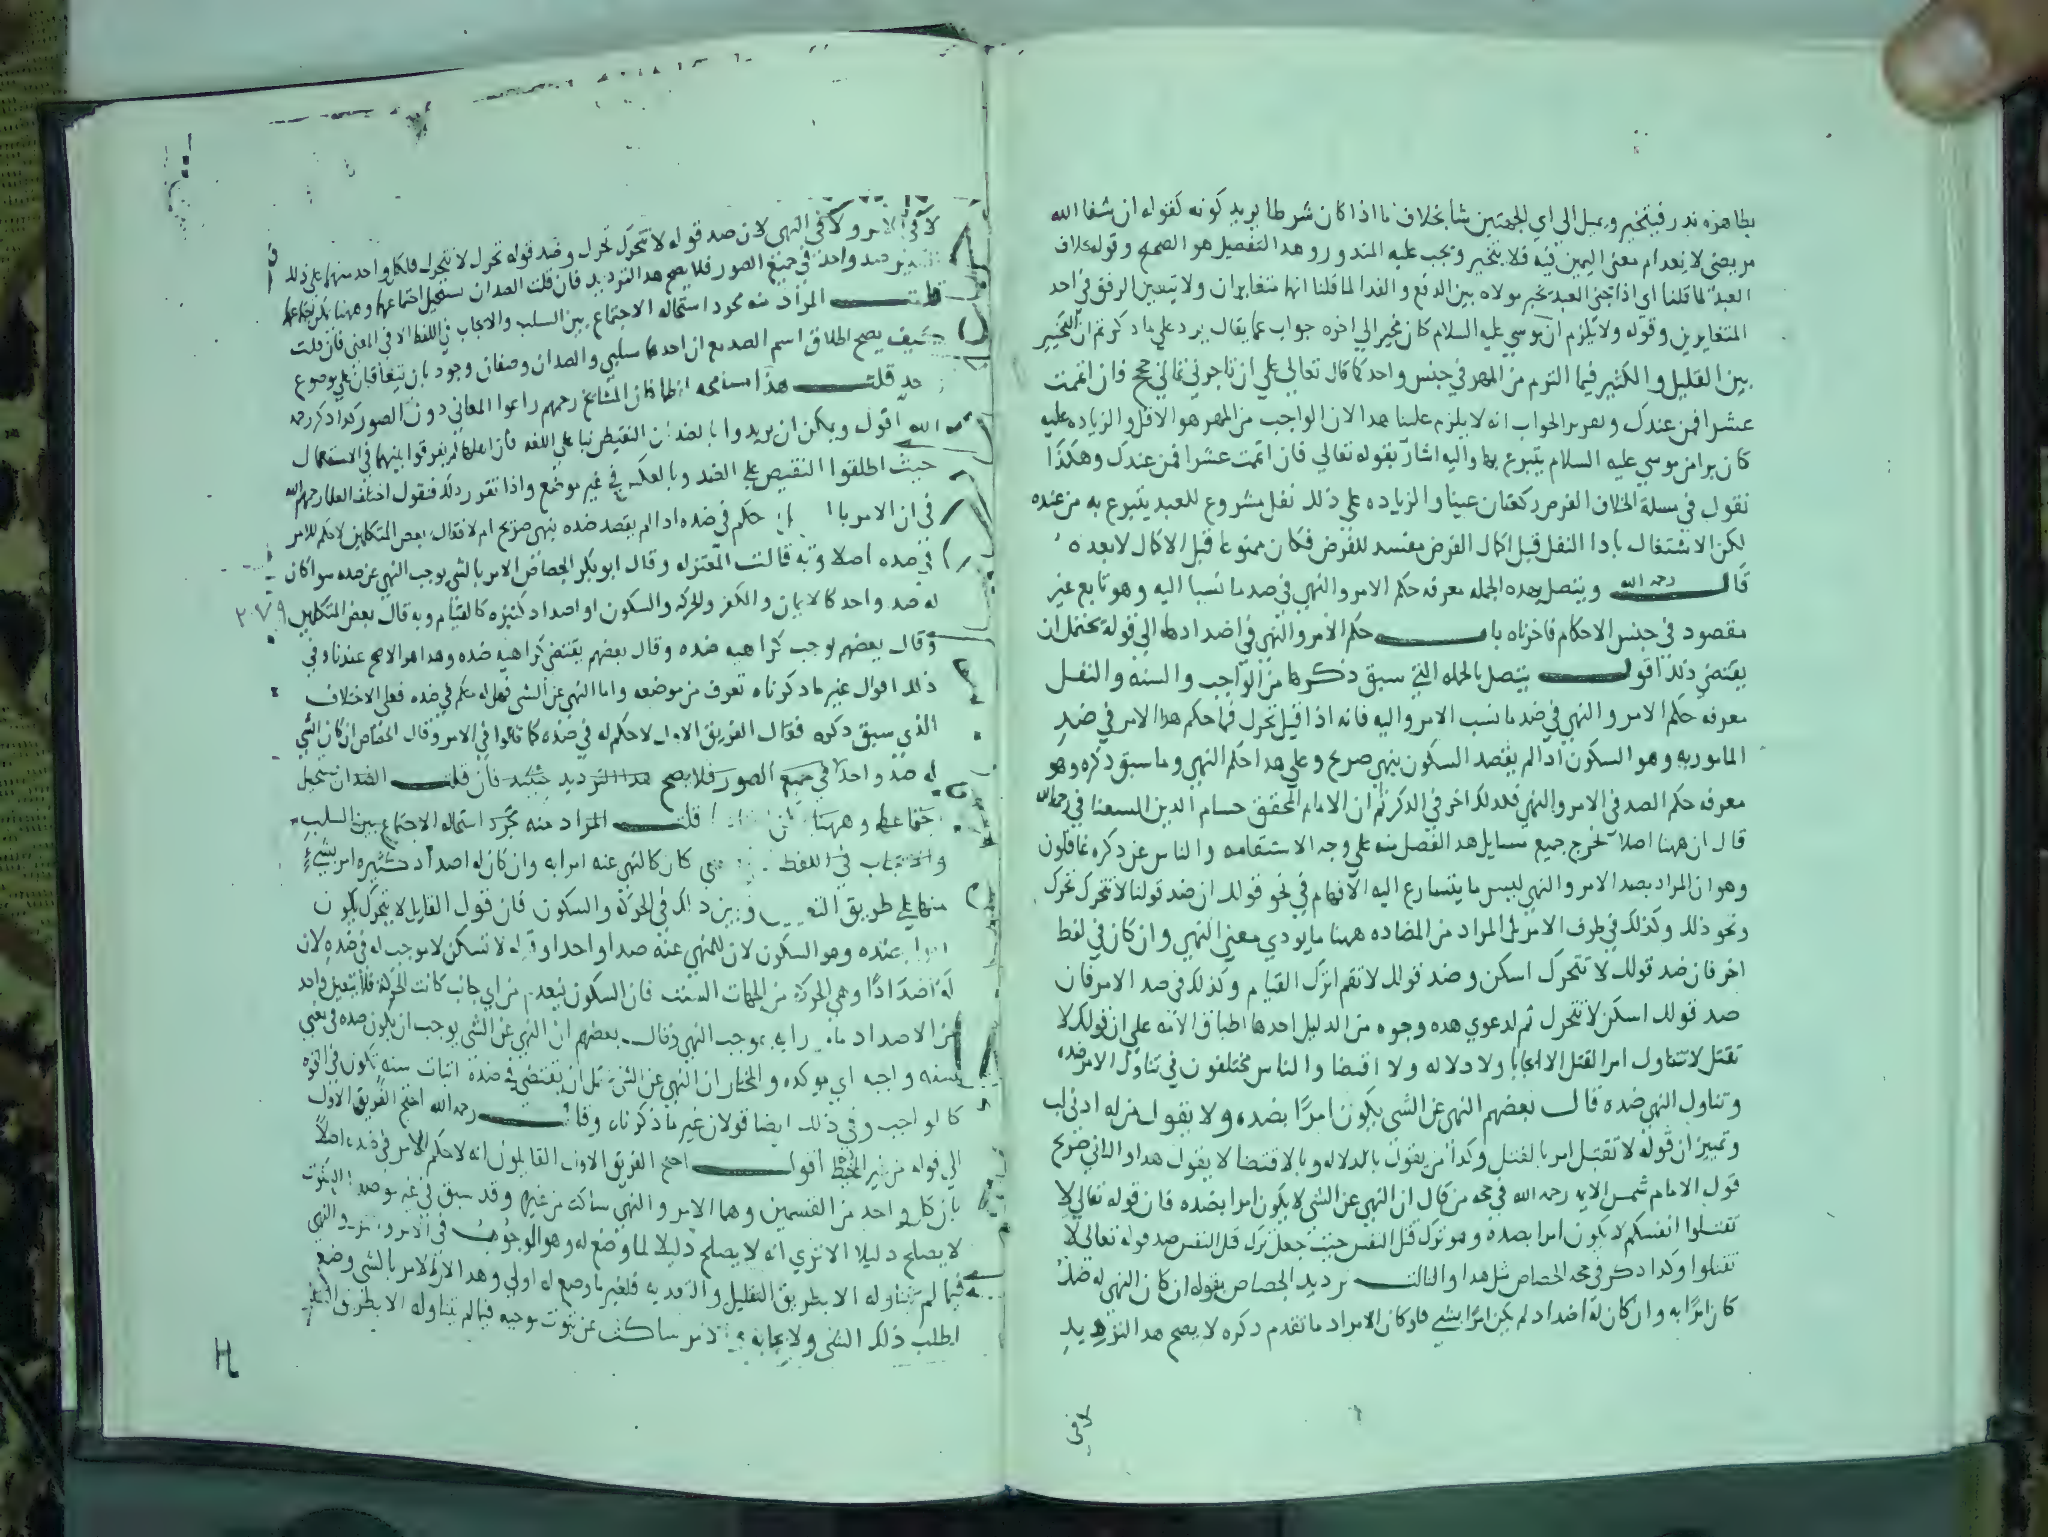 بظاهره نذر فيتخير ويميل الى اي الجهتين شا بخلاف ما اذا كان شرطا يريد كونه كقوله ان شفا الله
مريضي لانعدام معنى اليمين فيه فلا يتخير وتجب عليه المنذور وهذا التفصيل هو الصحيح وقوله بخلاف
العبد لما قلنا اي اذا جنى العبد يخير مولاه بين الدفع والفدا لما قلنا انهما متغايران ولا يتعين الرفق في احد
المتغايرين وقوله ولا يلزم ان موسي عليه السلام كان مخيرا الي اخره جواب عما يقال يرد علي ما ذكرتم ان التخيير
بين القليل والكثير فيما التزم من المهر في جنس واحد كما قال تعالي علي ان تاجرني ثماني حجج فان اتممت
عشرا فمن عندك وتقرير الجواب انه لا يلزم علينا هذا لان الواجب من المهر هو الاقل والزياده عليه
كان برا من موسي عليه السلام يتبرع بها واليه اشار بقوله تعالي فان اتممت عشرا فمن عندك وهكذا
نقول في مسلة الخلاف الفرض ركعتان عينا والزياده علي ذلك نفل مشروع للعبد يتبرع به من عنده
لكن الاشتغال بادا النفل قبل اكمال الفرض مفسد للفرض فكان ممنوعا قبل الاكمال لا بعده
قال رحمه الله ويتصل بهذه الجمله معرفه حكم الامر والنهي في ضد ما نسبا اليه وهو تابع غير
مقصود في جنس الاحكام فاخرناه باب حكم الامر والنهي في اضدادها الي قوله يحتمل ان
يقتضي ذلك اقول يتصل بالجمله التي سبق ذكرها من الواجب والسنه والنفل
معرفه حكم الامر والنهي في ضد ما نسب الامر واليه فانه اذا قيل تحرك فما حكم هذا الامر في ضد
المامور به وهو السكون اذا لم يقصد السكون بنهي صريح وعلي هذا حكم النهي وما سبق ذكره وهو
معرفه حكم الضد في الامر والنهي فلذلك اخر في الذكر ثم ان الامام المحقق حسام الدين السغناقي رحمه الله
قال ان ههنا اصلا يخرج جميع مسايل هذا الفصل منه علي وجه الاستقامه والناس عن ذكره غافلون
وهو ان المراد بضد الامر والنهي ليس ما يتسارع اليه الافهام في نحو قولك ان ضد قولنا لا تتحرك تحرك
ونحو ذلك وكذلك في طرف الامر بل المراد من المضاده ههنا ما يودي معني النهي وان كان في لفظ
اخر فان ضد قولك لا تتحرك اسكن وضد قولك لا تقم اترك القيام وكذلك في ضد الامر فان
ضد قولك اسكن لا تتحرك ثم لدعوي هذه وجوه من الدليل احدها اطباق الائمه علي ان قولك لا
تقتل لا تتناول امر القتل لا ايجابا ولا دلاله ولا اقتضا والناس مختلفون في تناول الامر ضده
وتناول النهي ضده قال بعضهم النهي عن الشي يكون امرا بضده ولا يقول من له ادنى لب
وتمييز ان قوله لا تقتل امر بالقتل وكذا من يقول بالدلاله وبالاقتضا لا يقول هذا والثاني صريح
قول الامام شمس الايمه رحمه الله في حجه من قال ان النهي عن الشي لا يكون امرا بضده فان قوله تعالي لا
تقتلوا انفسكم لا يكون امرا بضده وهو ترك قتل النفس حيث جعل ترك قتل النفس ضد قوله تعالي لا
تقتلوا وكذا ذكر في حجه الخصاص مثل هذا والثالث ترديد الجصاص بقوله ان كان النهي له ضد
كان امرا به وان كان له اضداد لم يكن امرا بشي فلو كان الامر اد ما تقدم ذكره لا يصح هذا الترديد
لا في
لا في الامر ولا في النهي لان ضد قوله لا تتحرك تحرك وضد قوله تحرك لا تتحرك فلكل واحد منهما علي ذلك
التقدير ضد واحد في جميع الصور فلا يصح هذا الترديد فان قلت الضدان يستحيل اجتماعهما وههنا يمكن اجتماعهما
قلت المراد منه مجرد استحاله الاجتماع بين السلب والايجاب في اللفظ لا في المعني فان قلت
كيف يصح اطلاق اسم الضد مع ان احدهما سلبي والضدان وصفان وجوديان يتعاقبان علي موضوع
واحد قلت هذا مسامحه الفاظ فان المشائخ رحمهم راعوا المعاني دون الصور كذا ذكر رحمه
الله اقول ويمكن ان يريدوا بالضدين النقيضين بنا علي اللغه فان اهلها لم يفرقوا بينهما في الاستعمال
حيث اطلقوا النقيض علي الضد وبالعكس في غير موضع واذا تقرر ذلك فنقول اختلف العلما رحمهم الله
في ان الامر با حكم في ضده اذا لم يقصد ضده بنهي صريح ام لا فقال بعض المتكلمين لا حكم للامر
في ضده اصلا وبه قالت المعتزله وقال ابو بكر الجصاص الامر بالشي يوجب النهي عن ضده سوا كان
له ضد واحد كالايمان والكفر والحركه والسكون او اضداد كثيره كالقيام وبه قال بعض المتكلمين
٢٠٧٩
وقال بعضهم يوجب كراهيه ضده وقال بعضهم يقتضي كراهيه ضده وهذا هو الاصح عندنا وفي
ذلك اقوال غير ما ذكرناه تعرف من موضعه واما النهي عن الشي فهل له حكم في ضده فعلي الاختلاف
الذي سبق ذكره فقال الفريق الاول لا حكم له في ضده كما قالوا في الامر وقال الجصاص ان كان للشي
له ضد واحدا في جميع الصور فلا يصح هذا الترديد حينئذ فان قلت الضدان يستحيل
اجتماعهما وههنا قلت المراد منه مجرد استحاله الاجتماع بين السلب
والايجاب في اللفظ كان كالنهي عنه امرا به وان كان له اضداد كثيره امر بشيء
منها علي طريق التعيين وبين ذلك في الحركه والسكون فان قول القايل لا يتحرك يكون
امرا عنده وهو السكون لان للمنهي عنه ضدا واحدا وقوله لا تسكن لا موجب له في ضده لان
له اضدادا وهي الحركه من الجهات الست فان السكون ينعدم من اي جانب كانت الحركه فلا يتعين واحد
من الاضداد مامورا به بموجب النهي وقال بعضهم ان النهي عن الشي يوجب ان يكون ضده في معني
سنه واجبه اي موكده والمختار ان النهي عن الشي يحتمل ان يقتضي في ضده اثبات سنه يكون في القوه
كالواجب وفي ذلك ايضا قولان غير ما ذكرناه وقال رحمه الله احتج الفريق الاول
الي قوله من غير اقول احتج الفريق الاول القايلون انه لا حكم للامر في ضده اصلا
بان كل واحد من القسمين وهما الامر والنهي ساكت عن غيره وقد سبق في غير موضع ان السكوت
لا يصلح دليلا الا تري انه لا يصلح دليلا لما وضع له وهو الوجوب في الامر والنهي
فيما لم يتناوله الا بطريق التعليل والتعديه فلغير ما وضع له اولي وهذا لان الامر بالشي وضع
لطلب ذلك الشي ولايجابه الامر ساكت عن ثبوت موجبه فيما لم يتناوله الا بطريق